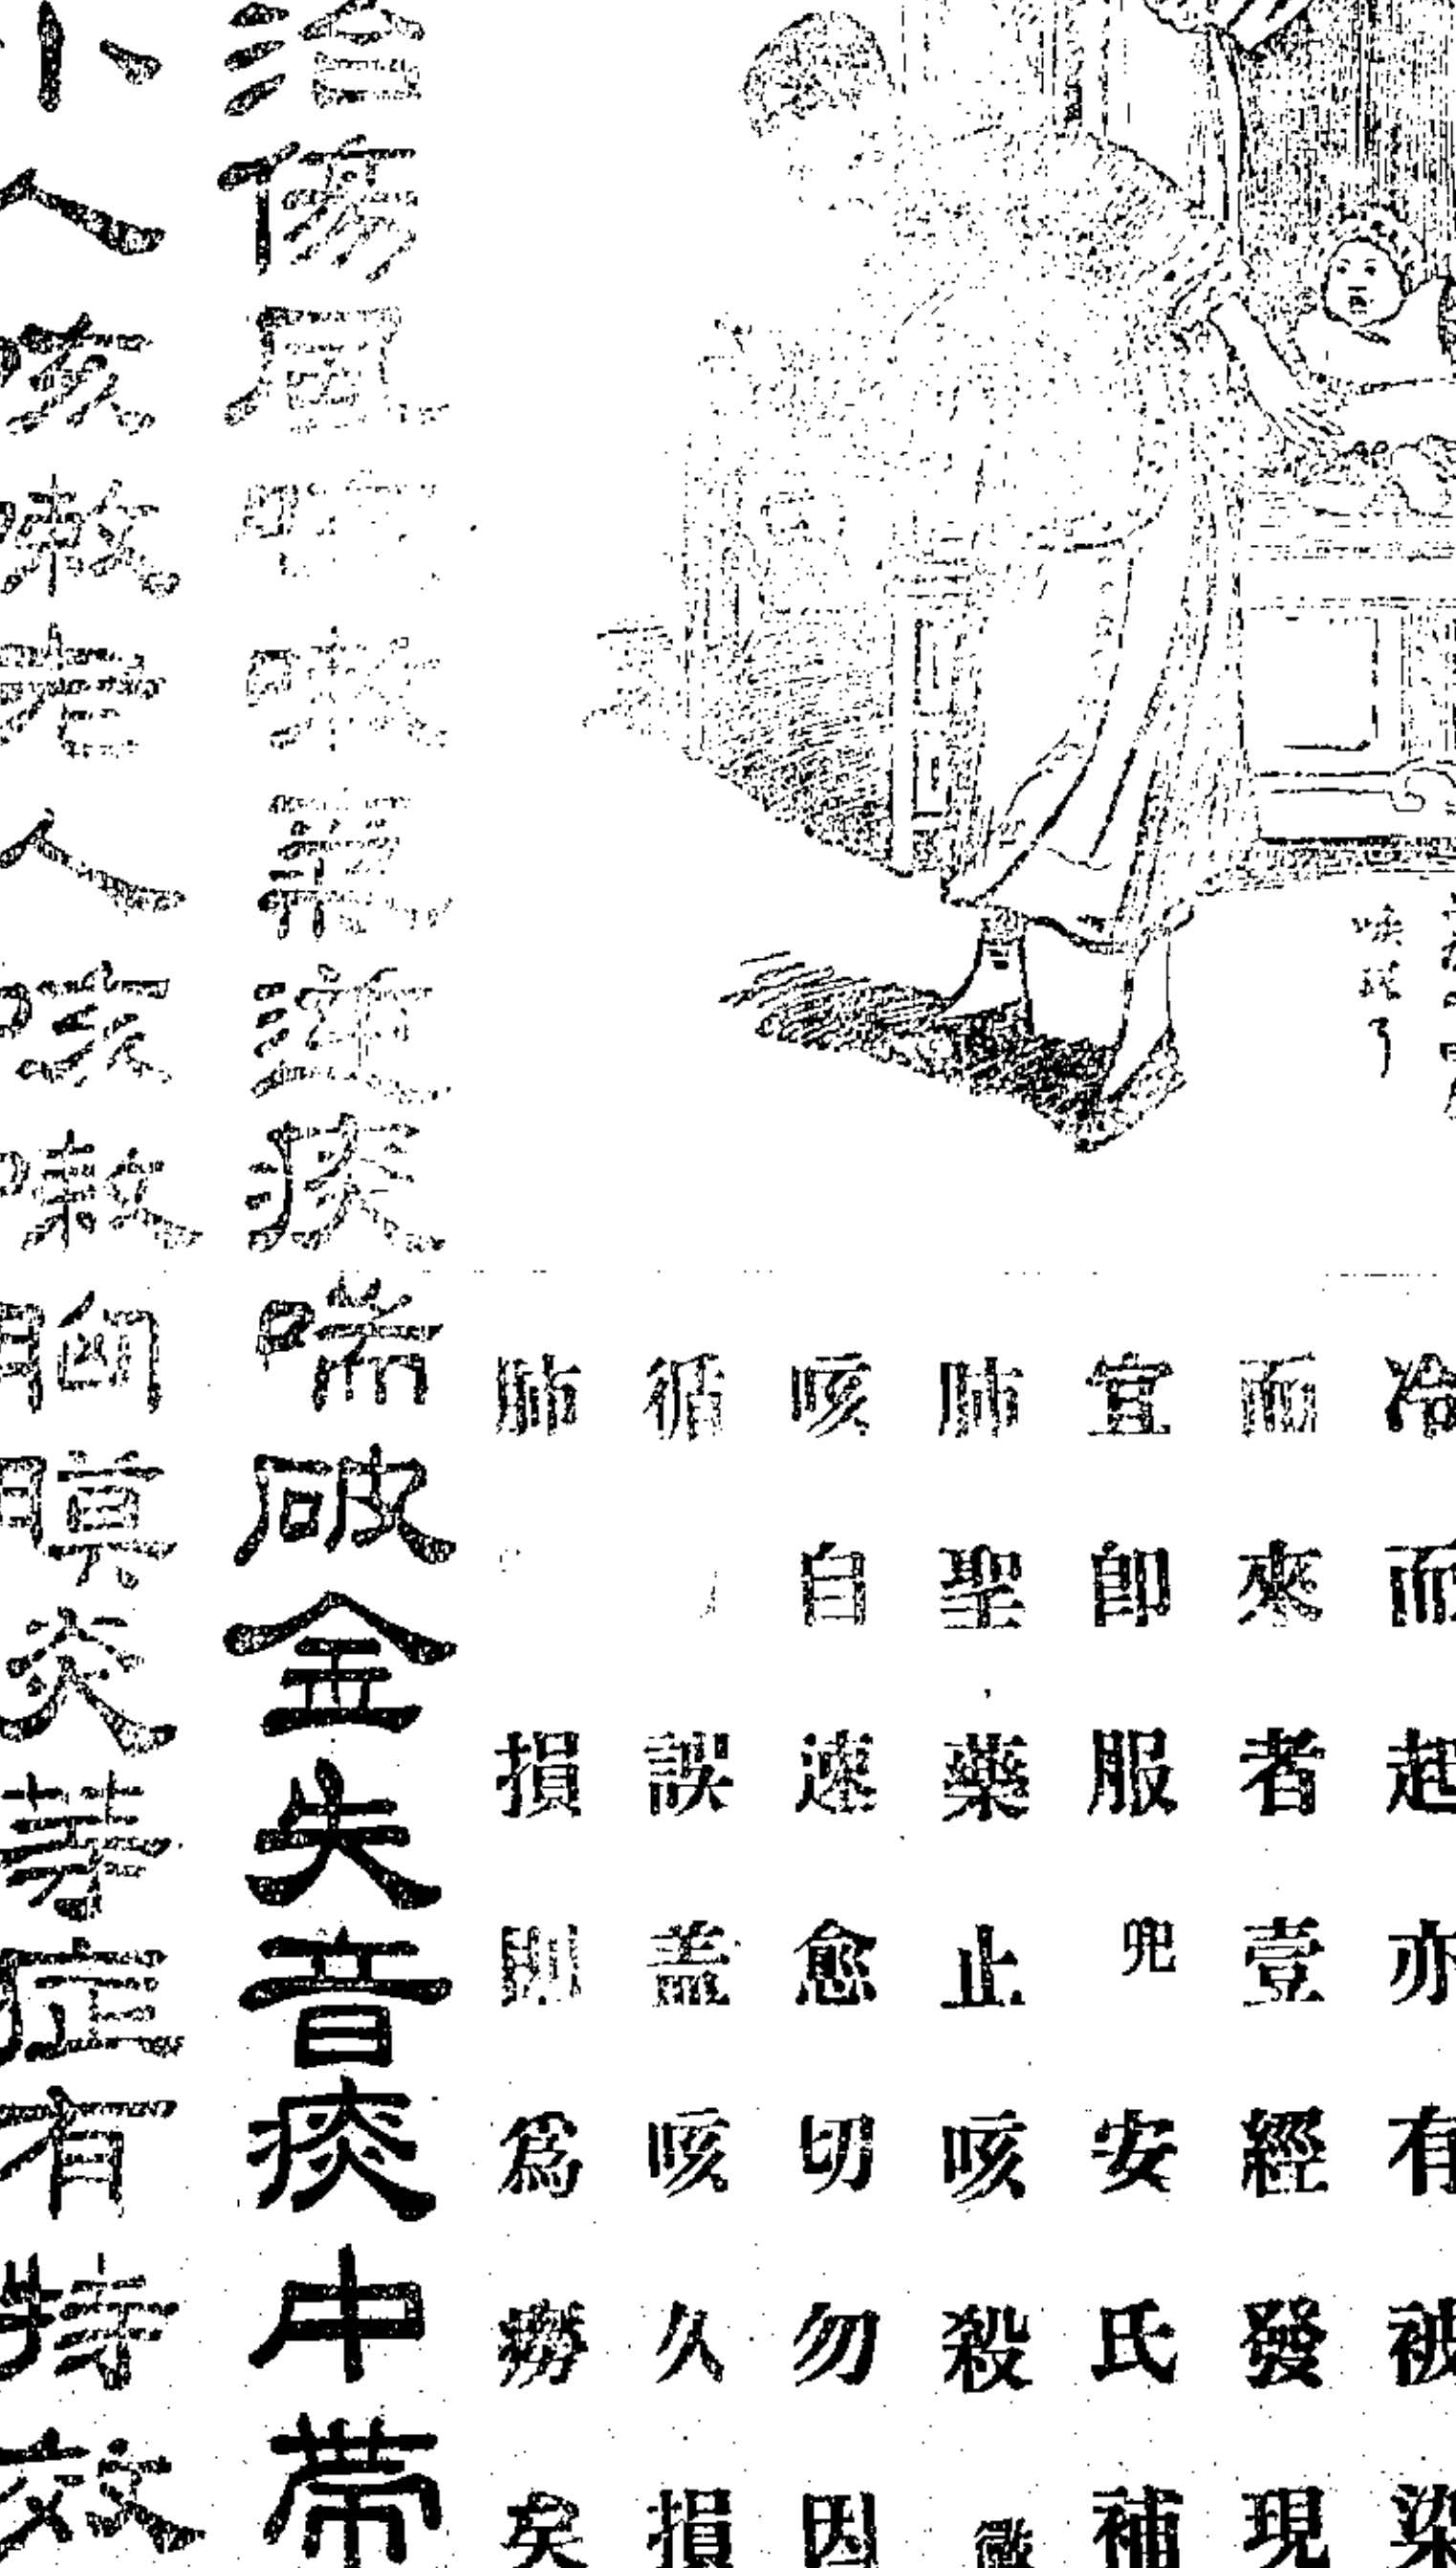 冷而起亦有被染
而來者壹經發現
宜卽服兜安氏補
肺聖藥止咳殺
咳自速愈切勿因
循誤盖咳久損
肺損則爲癆矣
治傷風咳嗽痰喘破金失音痰中帶
小人咳嗽老人咳嗽胸膜炎等症有特效